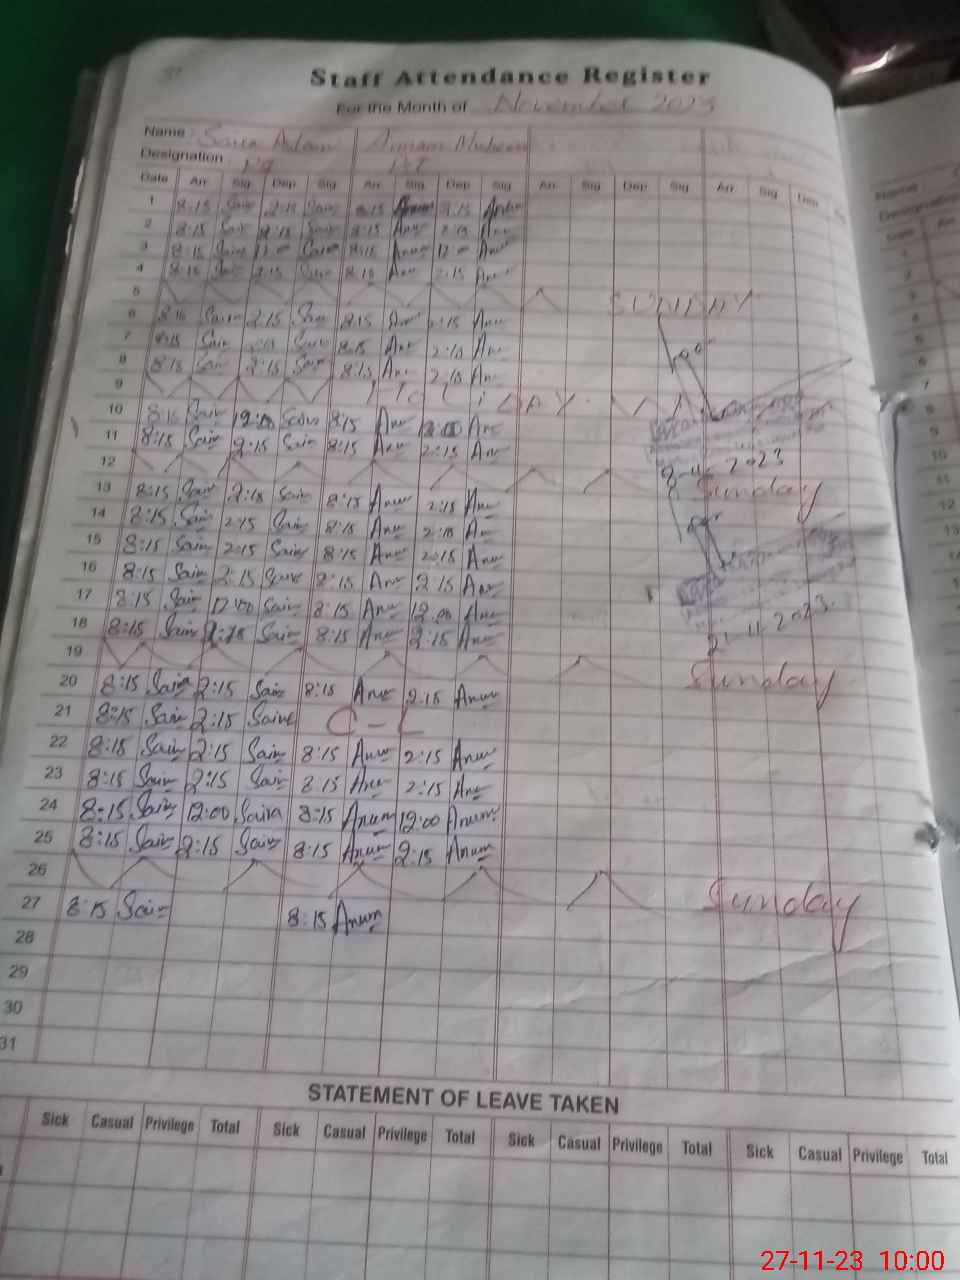 Staff Attendance Register
For the Month of November 2023
Name Saira
Designation
Date Arr Sig Dep Sig Arr Sig Dep Sig Arr Sig Dep Sig Arr Sig Dep
1 8:15 Sair 2:15 Sair 8:15 Anum 2:15 Anum
2 8:15 Sair 2:15 Sair 8:15 Anu 2:15 Anu
3 8:15 Saira 12:00 Saira 8:15 Anum 12:00 Anu
4 8:15 Sair 2:15 Sair 8:15 Anu 2:15 Anu
5 SUNDAY
6 8:15 Sair 2:15 Sair 8:15 Anu 2:15 Anu
7 8:15 Sair 2:15 Sair 8:15 Anu 2:15 Anu
8 8:15 Sair 2:15 Sair 8:15 Anu 2:15 Anu
9 HOLiDAY
10 8:15 Sair 12:00 Saira 8:15 Anu 12:00 Anu
11 8:15 Sair 2:15 Sair 8:15 Anu 2:15 Anu
8-11-2023
12 Sunday
13 8:15 Sair 2:15 Sair 8:15 Anum 2:15 Anum
14 8:15 Sair 2:15 Sair 8:15 Anu 2:15 Anu
15 8:15 Sair 2:15 Sair 8:15 Anu 2:15 Anu
16 8:15 Sair 2:15 Sair 8:15 Anu 2:15 Anu
17 8:15 Sair 12:00 Sair 8:15 Anu 12:00 Anu
18 8:15 Sair 2:15 Sair 8:15 Anu 2:15 Anu
21-11-2023.
19 Sunday
20 8:15 Saira 2:15 Sair 8:15 Anu 2:15 Anum
21 8:15 Sair 2:15 Saira C-L
22 8:15 Sair 2:15 Sair 8:15 Anum 2:15 Anum
23 8:15 Sair 2:15 Sair 8:15 Anu 2:15 Anu
24 8:15 Sair 12:00 Saira 8:15 Anum 12:00 Anum
25 8:15 Sair 2:15 Sair 8:15 Anum 2:15 Anum
26 Sunday
27 8:15 Sair 8:15 Anum
28
29
30
31
STATEMENT OF LEAVE TAKEN
Sick Casual Privilege Total Sick Casual Privilege Total Sick Casual Privilege Total Sick Casual Privilege Total
27-11-23 10:00